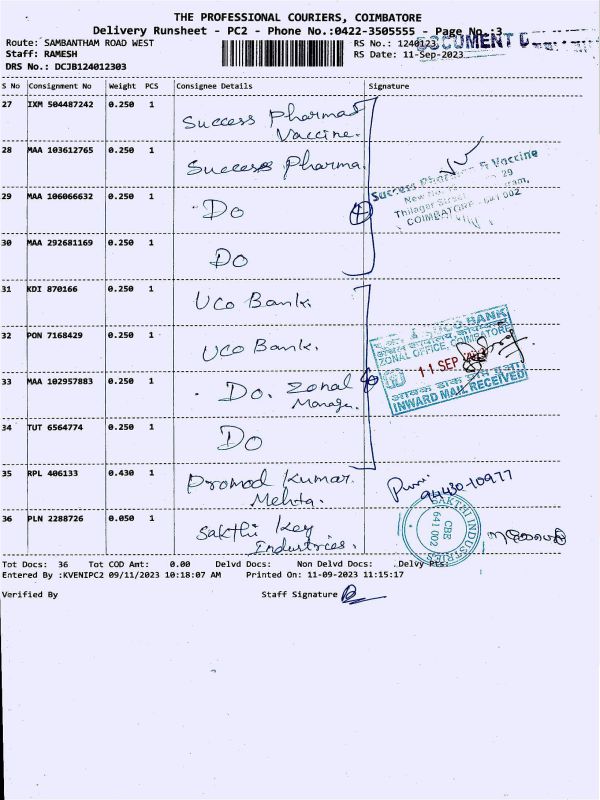 THE PROFESSIONAL COURIERS, COIMBATORE
Delivery Runsheet - PC2 - Phone No.:0422-3505555 - Page No. 3
Route: SAMBANTHAM ROAD WEST
RS No.: 1240123
DOCUMENT
Staff: RAMESH
RS Date: 11-Sep-2023
DRS No.: DCJB124012303
S No Consignment No Weight PCS Consignee Details Signature
27 IXM 504487242 0.250 1 Success Pharma
Vaccine.
28 MAA 103612765 0.250 1 Success Pharma.
Success Pharma & Vaccine
29
Thilagar Street
COIMBATORE - 641 002
29 MAA 106066632 0.250 1 Do
4
30 MAA 292681169 0.250 1 Do
31 KDI 870166 0.250 1 UCO Bank.
32 PON 7168429 0.250 1 UCO Bank.
UCO BANK
ZONAL OFFICE, COIMBATORE
11 SEP
INWARD MAIL RECEIVED
33 MAA 102957883 0.250 1 Do. Zonal
Manager.
34 TUT 6564774 0.250 1 Do
35 RPL 406133 0.430 1 Promod Kumar.
Mehta.
94430-10977
36 PLN 2288726 0.050 1 Sakthi Key
Industries.
SAKTHI INDUSTRIES
CBE
641 002
Tot Docs: 36 Tot COD Amt: 0.00 Delvd Docs: Non Delvd Docs: Delvy Pts:
Entered By :KVENIPC2 09/11/2023 10:18:07 AM Printed On: 11-09-2023 11:15:17
Verified By Staff Signature